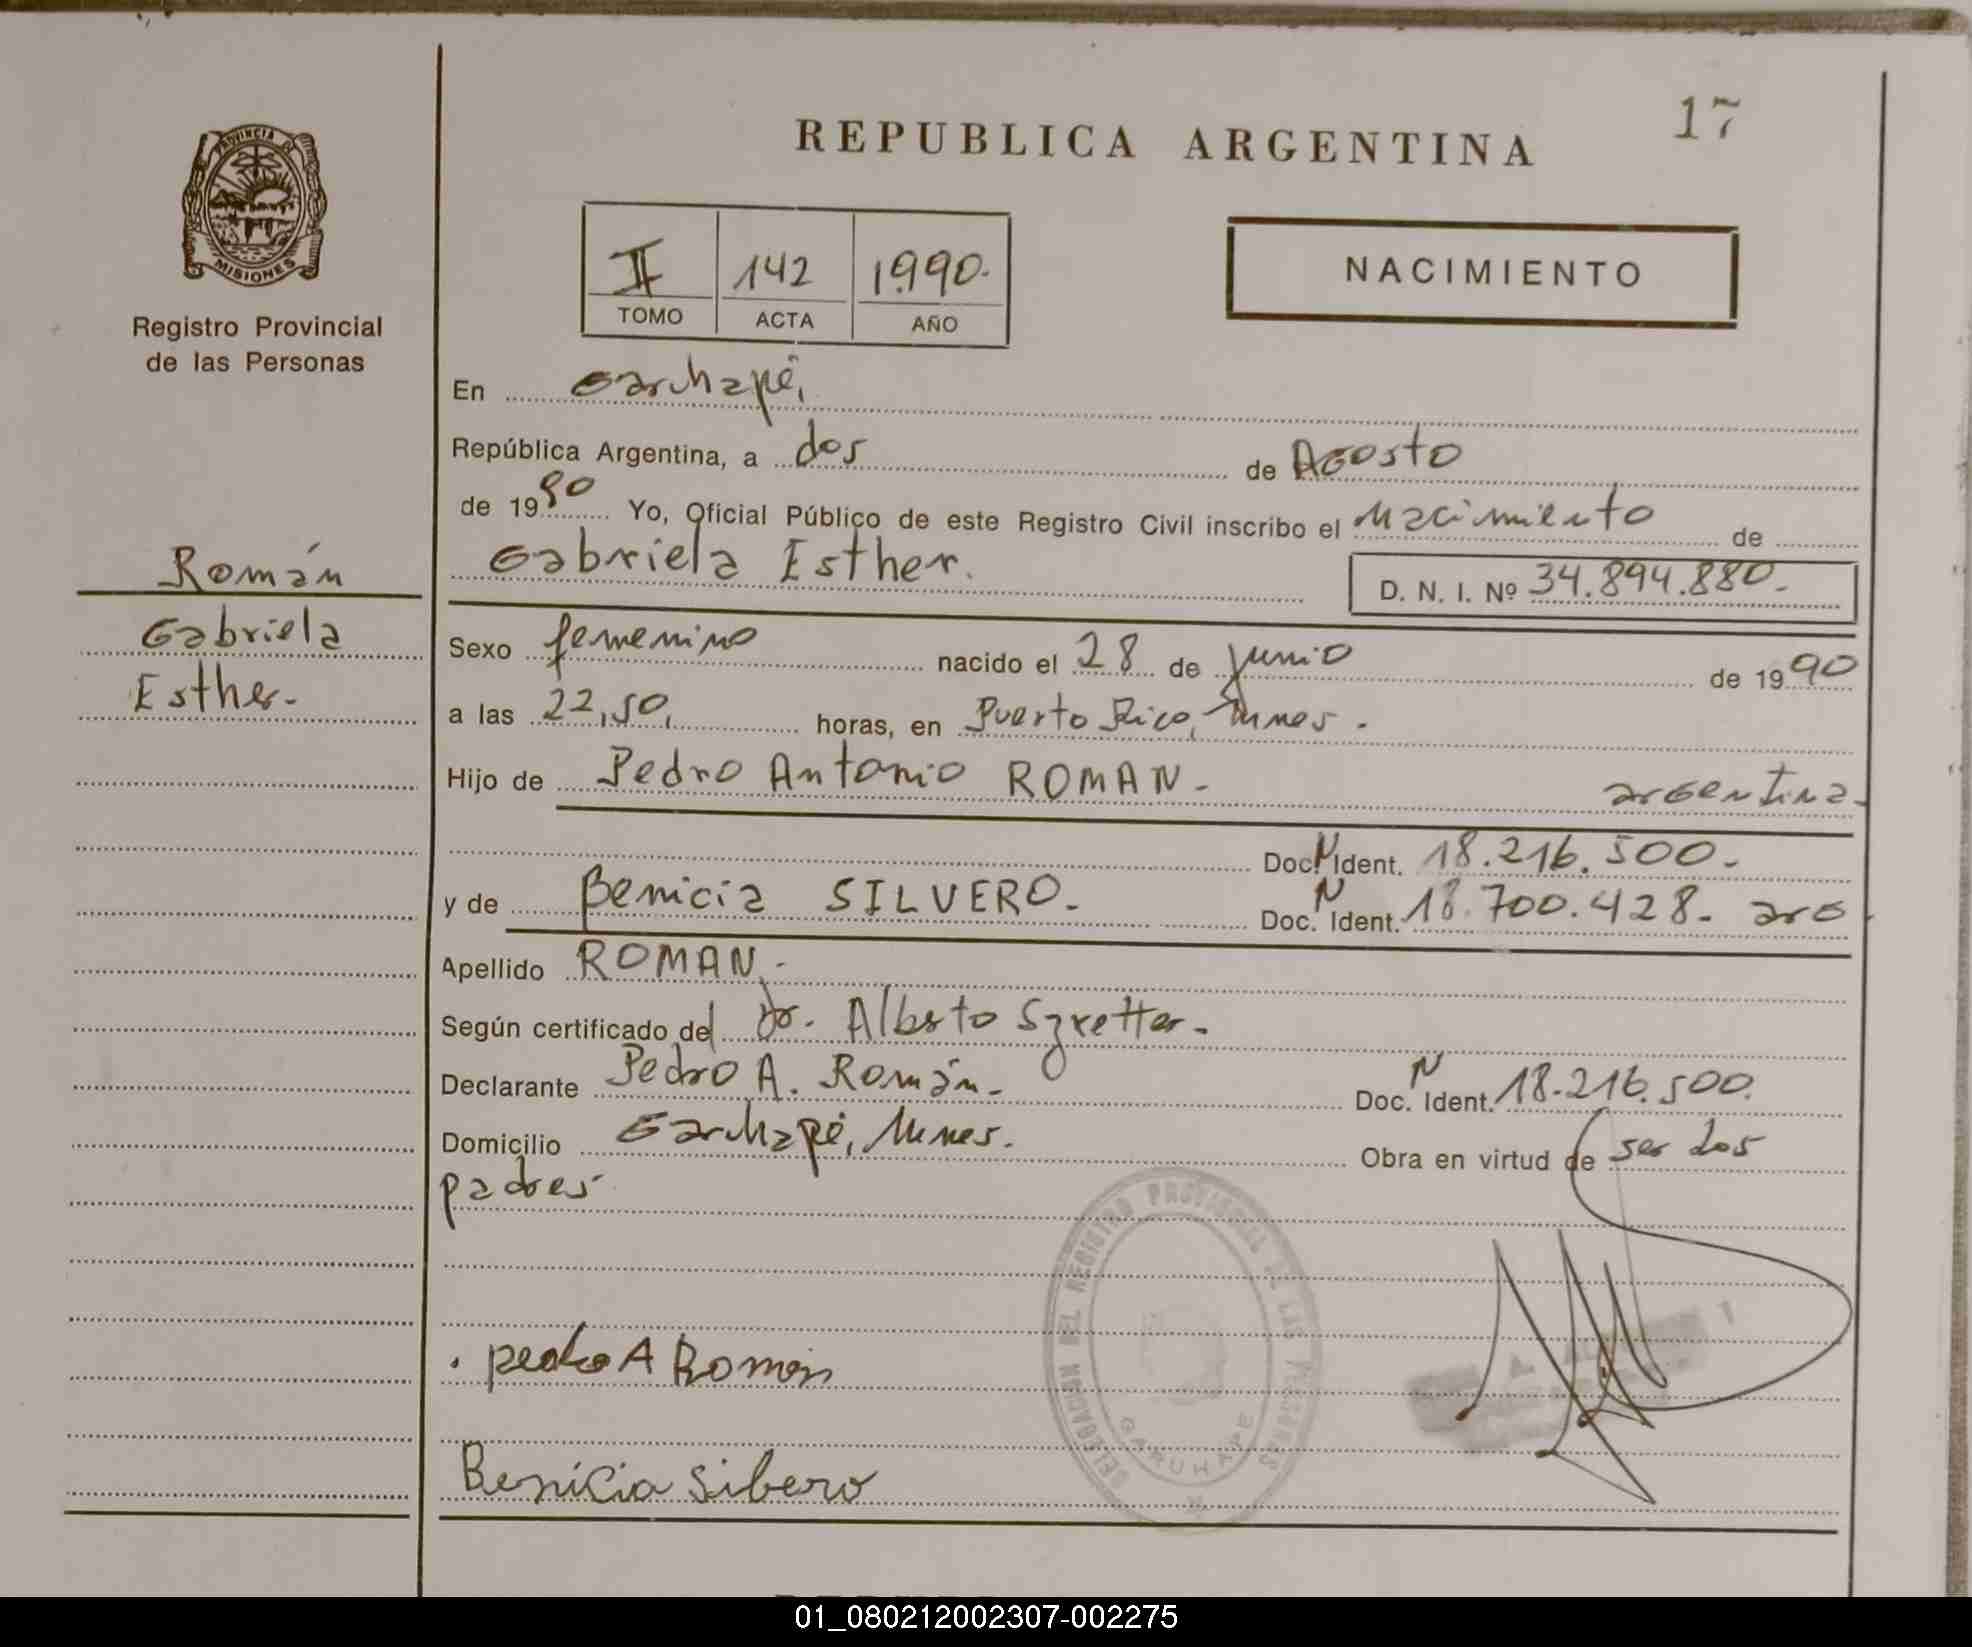 17
REPUBLICA ARGENTINA
PROVINCIA DE
MISIONES
Registro Provincial
de las Personas
II 142 1990.
TOMO ACTA AÑO
NACIMIENTO
En Garuhapé,
República Argentina, a dos de Agosto
de 1990 Yo, Oficial Público de este Registro Civil inscribo el nacimiento de
Gabriela Esther.
D. N. I. Nº 34.894.880.-
Román
Gabriela
Esther.-
Sexo femenino nacido el 28 de junio de 1990
a las 22,50, horas, en Puerto Rico, Mnes.
Hijo de Pedro Antonio ROMAN.- argentina.
Doc. N Ident. 18.216.500.-
y de Benicia SILVERO.- Doc. N Ident. 18.700.428.- arg
Apellido ROMAN.-
Según certificado del dr. Alberto Szretter.-
Declarante Pedro A. Román.- Doc. N Ident. 18.216.500.
Domicilio Garuhapé, Mnes. Obra en virtud de ser los
padres
DELEGACION DEL REGISTRO PROVINCIAL DE LAS PERSONAS
GARUHAPE
. pedro A Roman
Benicia Sibero
01_080212002307-002275